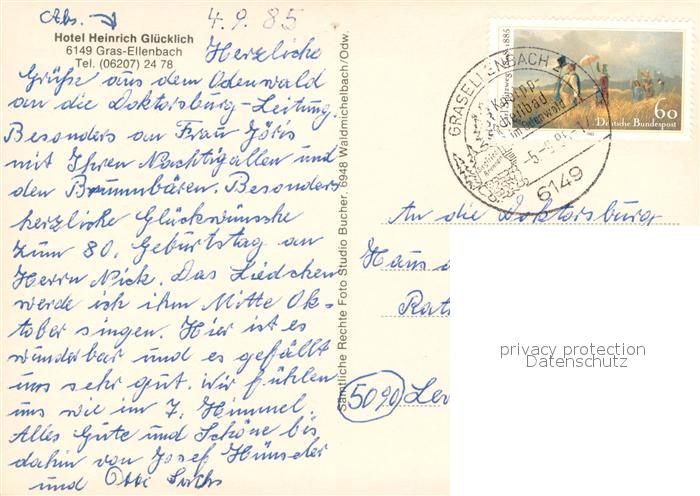 Abs.
4.9.85
Hotel Heinrich Glücklich
6149 Gras-Ellenbach
Tel. (06207) 24 78
Herzliche
Grüße aus dem Odenwald
an die Doktorsburg-Leitung.
Besonders an Frau Jöris
mit Ihren Nachtigallen und
den Brummbären. Besonders
herzliche Glückwünsche
zum 80. Geburtstag an
Herrn Nick. Das Liedchen
werde ich ihm Mitte Ok-
tober singen. Hier ist es
wunderbar und es gefällt
uns sehr gut. Wir fühlen
uns wie im 7. Himmel.
Alles Gute und Schöne bis
dahin von Josef Hünseler
und Otti
Sämtliche Rechte Foto Studio Bucher, 6948 Waldmichelbach/Odw.
1885
60
Deutsche Bundespost
GRASELLENBACH
Kneipp-
heilbad
im Odenwald
-5.-9.85
6149
An die Doktorsburg
Haus
Rat
5090 Lev
privacy protection
Datenschutz